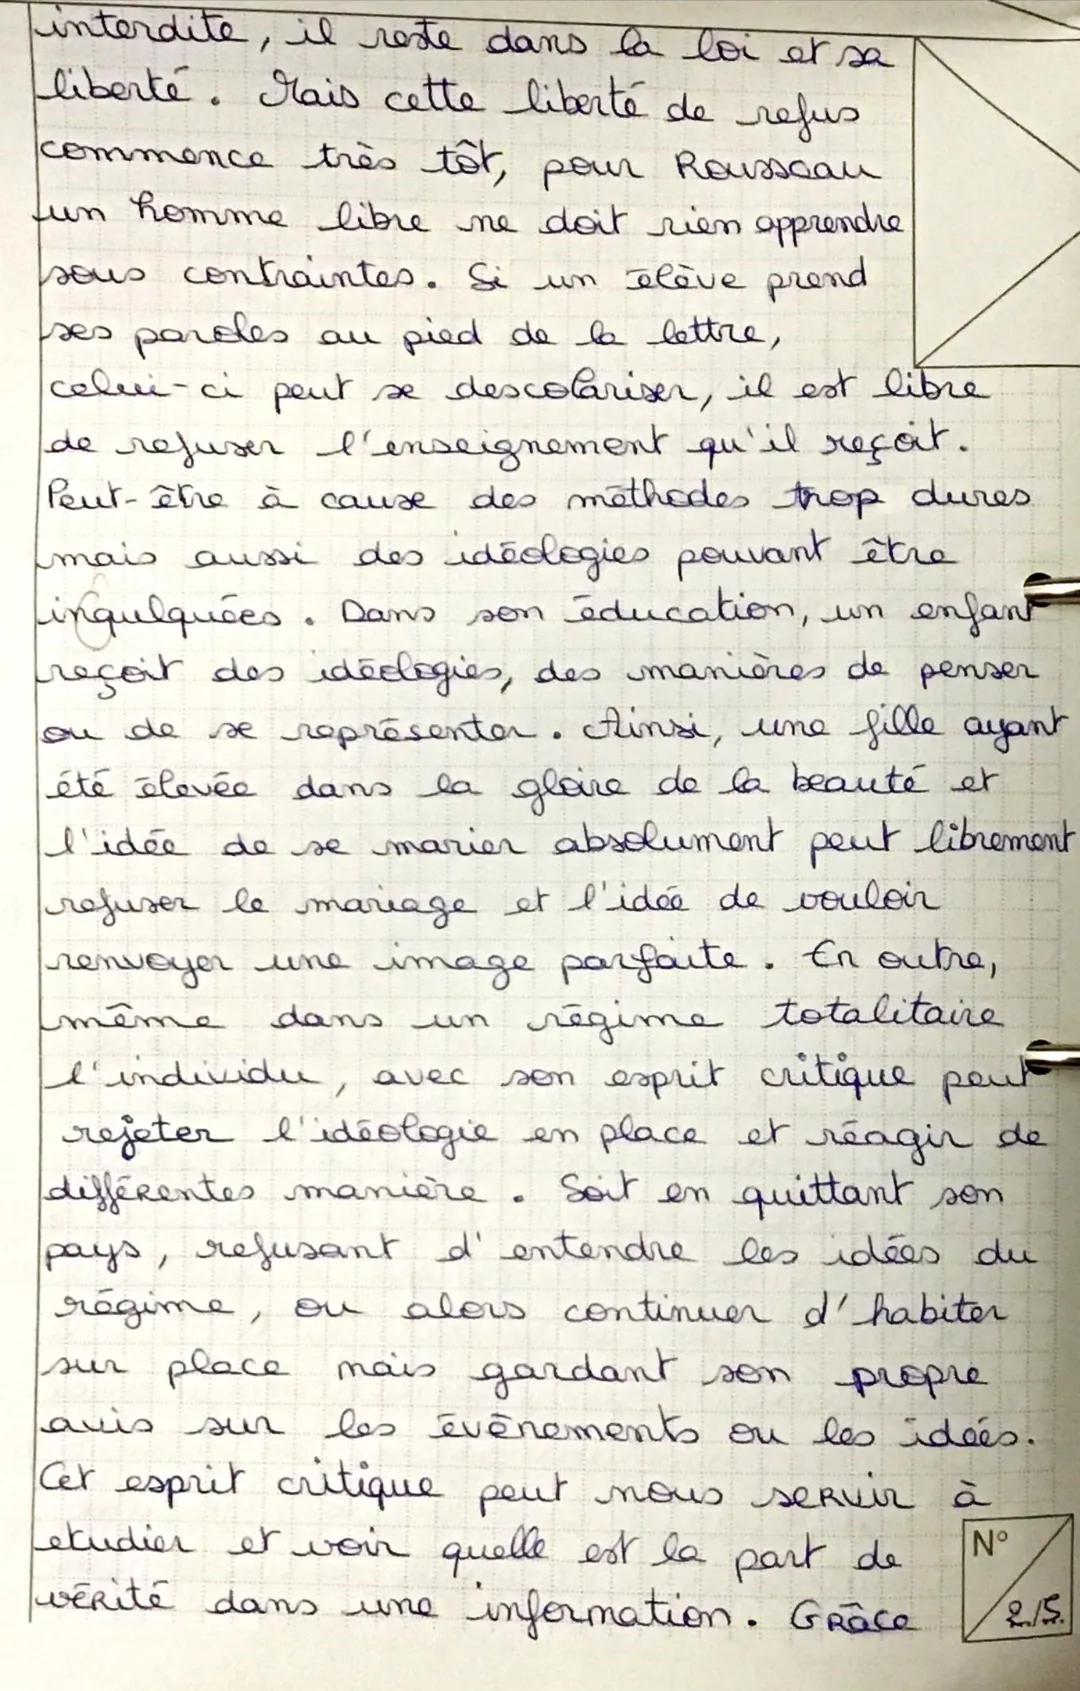 interdite, il reste dans la loi et sa
liberté. Mais cette liberté de refus
commence très tôt, pour Rousseau
un homme libre ne doit rien apprendre
sous contraintes. Si un élève prend
ses paroles au pied de la lettre,
celui-ci peut se descolariser, il est libre
de refuser l'enseignement qu'il reçoit.
Peut-être à cause des méthodes trop dures
mais aussi des idéologies pouvant être
inqulquées. Dans son éducation, un enfant
reçoit des idéologies, des manières de penser
ou de se représenter. Ainsi, une fille ayant
été élevée dans la gloire de la beauté et
l'idée de se marier absolument peut librement
refuser le mariage et l'idée de vouloir
renvoyer une image parfaite. En outre,
même dans un régime totalitaire
l'individu, avec son esprit critique peut
rejeter l'idéologie en place et réagir de
différentes manière. Soit en quittant son
pays, refusant d'entendre les idées du
régime, ou alors continuer d'habiter
sur place mais gardant son propre
avis sur les évènements ou les idées.
Cet esprit critique peut nous servir à
etudier et voir quelle est la part de
vérité dans une information. Grâce
N°
2/5